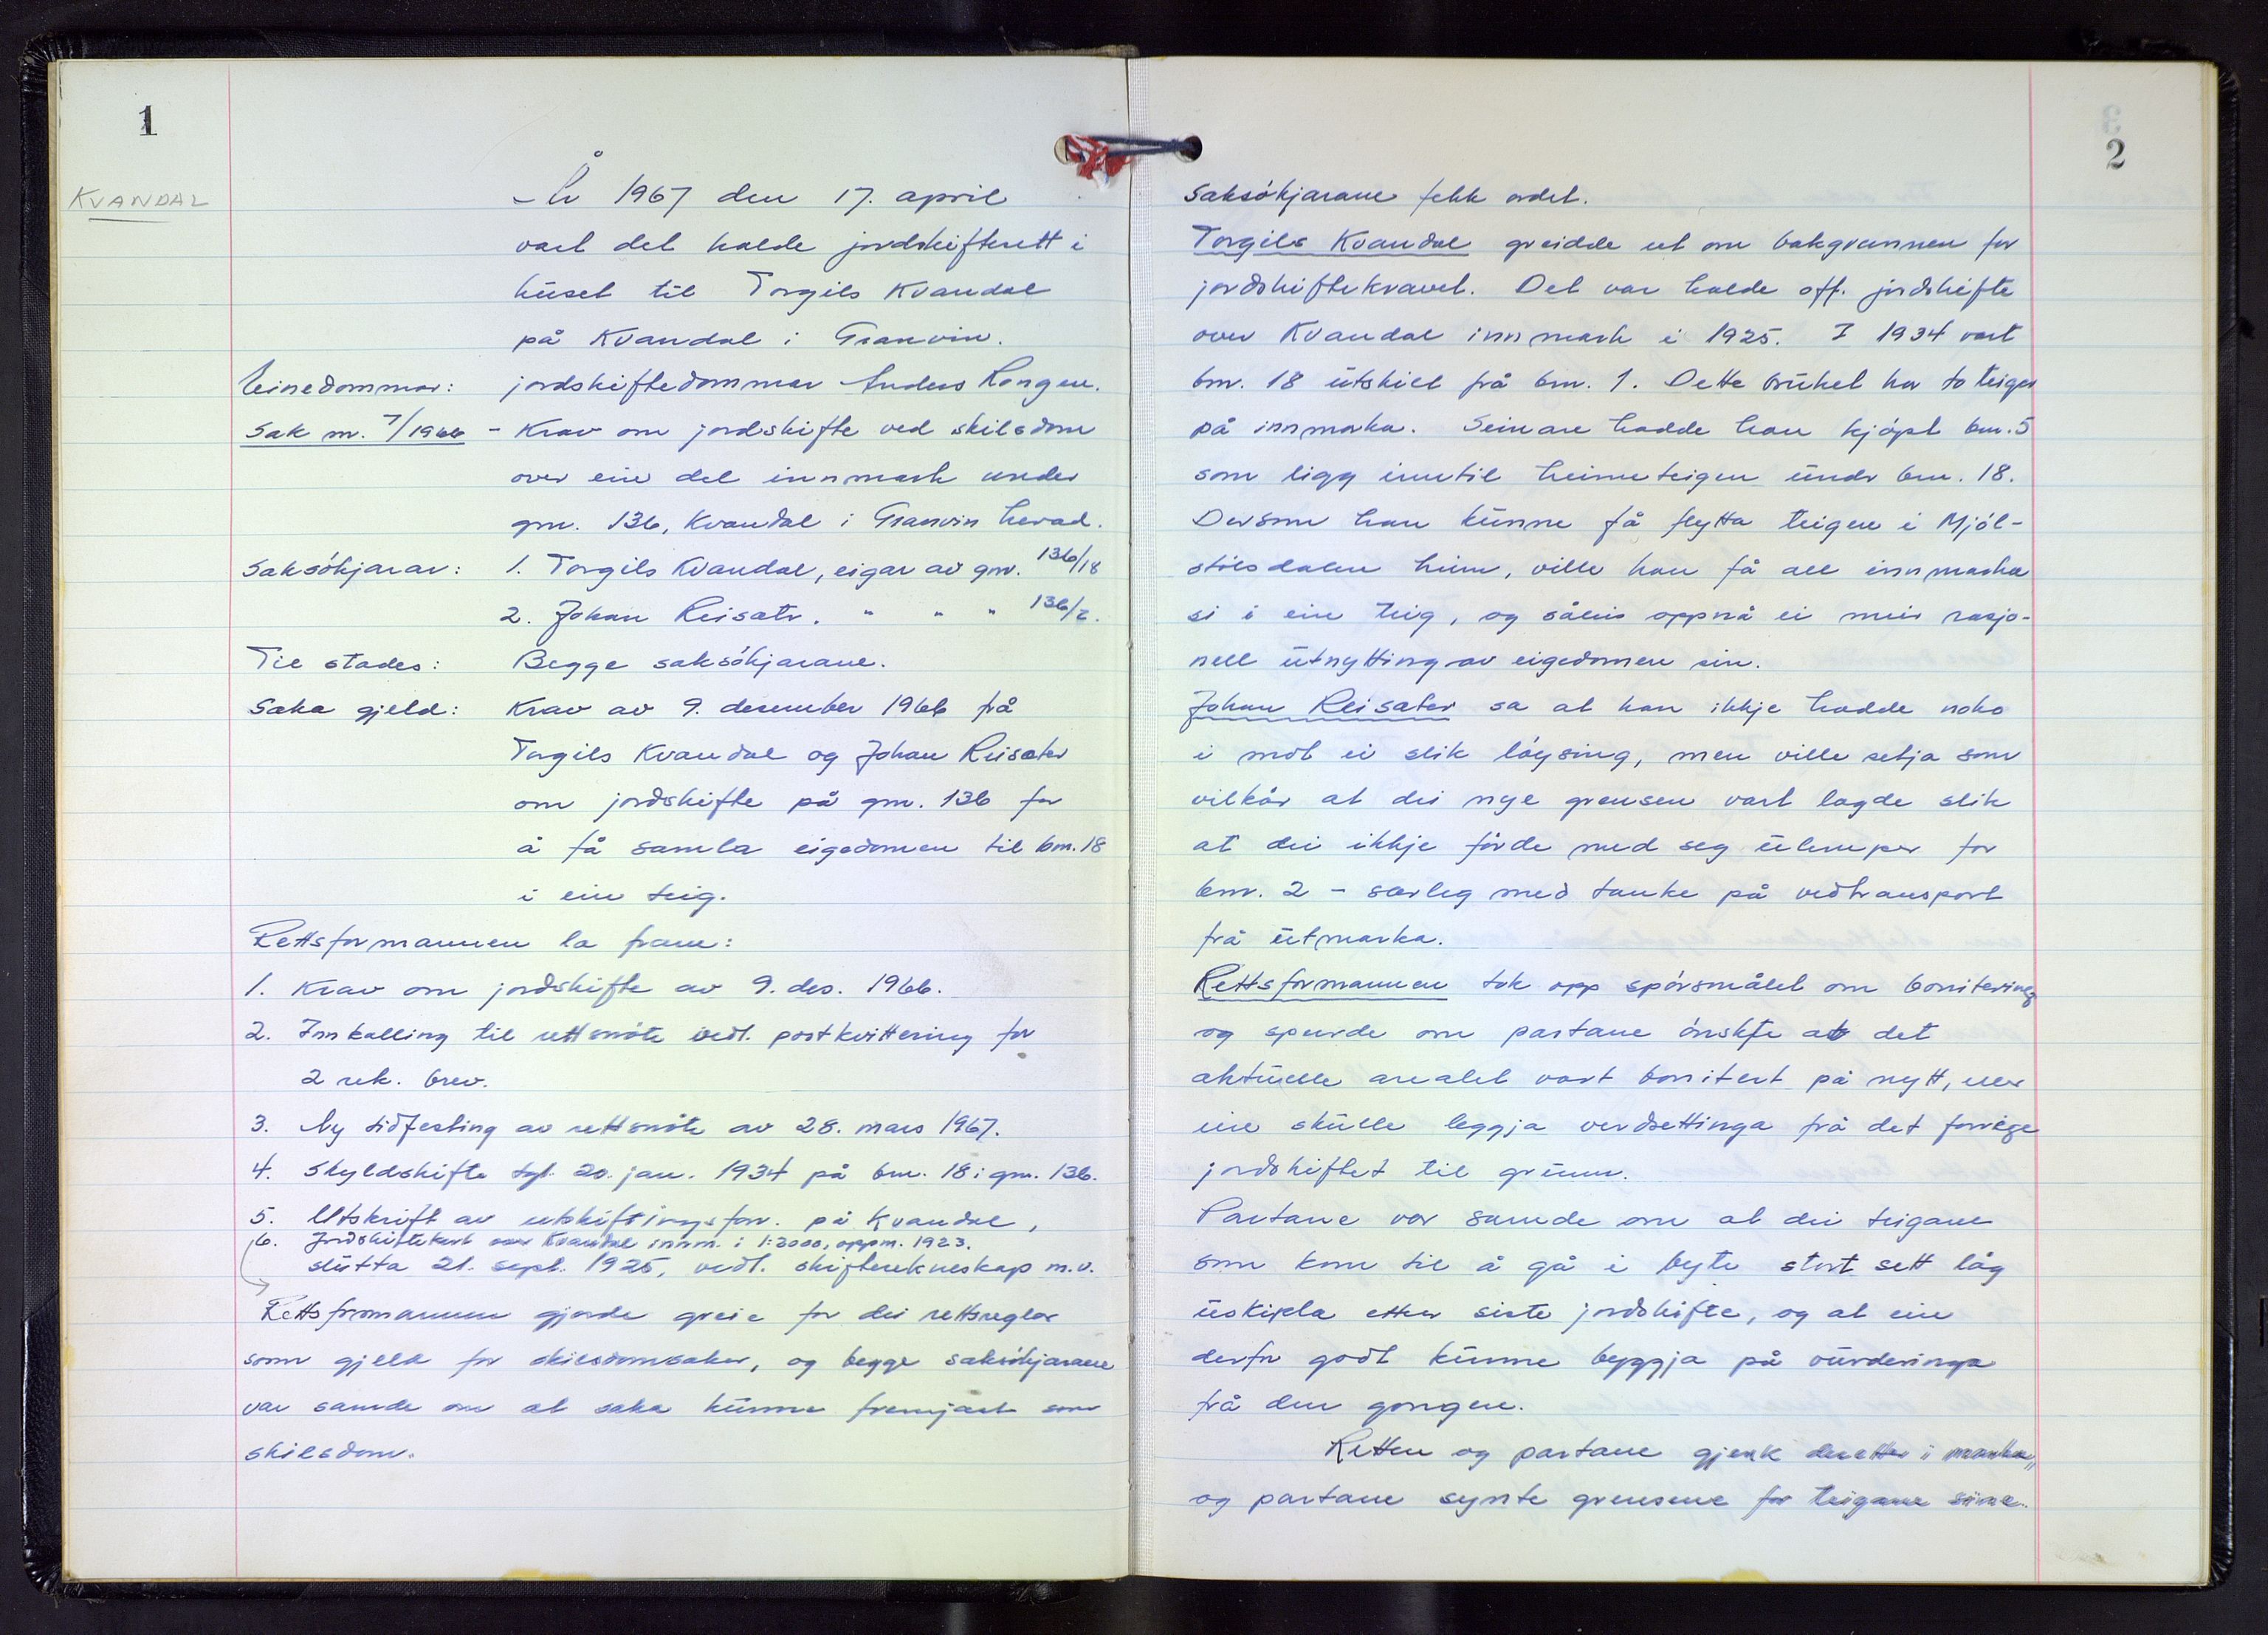 1
KVANDAL
År 1967 den 17. april
vart det halde jordskifterett i
huset til Torgils Kvandal
på Kvandal i Granvin.
Einedommar: jordskiftedommar Anders Rongen.
Sak nr. 7/1966 - Krav om jordskifte ved skilsdom
over ein del innmark under
gnr. 136, Kvandal i Granvin herad.
Saksökjarar: 1. Torgils Kvandal, eigar av gnr. 136/18
2. Johan Reisæter. " " " 136/2.
Til stades: Begge saksökjarane.
Saka gjeld: Krav av 9. desember 1966 frå
Torgils Kvandal og Johan Reisæter
om jordskifte på gnr. 136 for
å få samla eigedomen til bnr. 18
i ein teig.
Rettsformannen la fram:
1. Krav om jordskifte av 9. des. 1966.
2. Innkalling til rettsmöte vedl. postkvittering for
2 rek. brev.
3. Ny tidfesting av rettsmöte av 28. mars 1967.
4. Skyldskifte tgl. 20. jan. 1934 på bnr. 18 i gnr. 136.
5. Utskrift av utskiftingsforr. på Kvandal,
6. Jordskiftekart over Kvandal innm. i 1:2000, oppm. 1923.
slutta 21. sept. 1925, vedl. skifterekneskap m.v.
Rettsfromannen gjorde greie for dei rettsreglar
som gjeld for skilsdomsaker, og begge saksökjarane
var samde om at saka kunne fremjast som
skilsdom.
2
Saksökjarane fekk ordet.
Torgils Kvandal greidde ut om bakgrunnen for
jordskiftekravet. Det var halde off. jordskifte
over Kvandal innmark i 1925. I 1934 vart
bnr. 18 utskilt frå bnr. 1. Dette bruket har to teigar
på innmarka. Seinare hadde han kjöpt bnr. 5
som ligg inntil heimeteigen under bnr. 18.
Dersom han kunne få flytta teigen i Mjöl-
stölsdalen heim, ville han få all innmarka
si i ein teig, og såleis oppnå ei meir rasjo-
nell utnytting av eigedomen sin.
Johan Reisæter sa at han ikkje hadde noko
i mot ei slik löysing, men ville setja som
vilkår at dei nye grensen vart lagde slik
at dei ikkje förde med seg ulemper for
bnr. 2 - særleg med tanke på vedtransport
frå utmarka.
Rettsformannen tok opp spörsmålet om bonitering
og spurde om partane önskte at det
aktuelle arealet vart bonitert på nytt, eller
ein skulle leggja verdsettinga frå det forrige
jordskiftet til grunn.
Partane var samde om at dei teigane
som kom til å gå i byte stort sett låg
uskipla etter siste jordskifte, og at ein
derfor godt kunne byggja på vurderinga
frå den gongen.
Retten og partane gjekk deretter i marka,
og partane synte grensene for teigane sine.